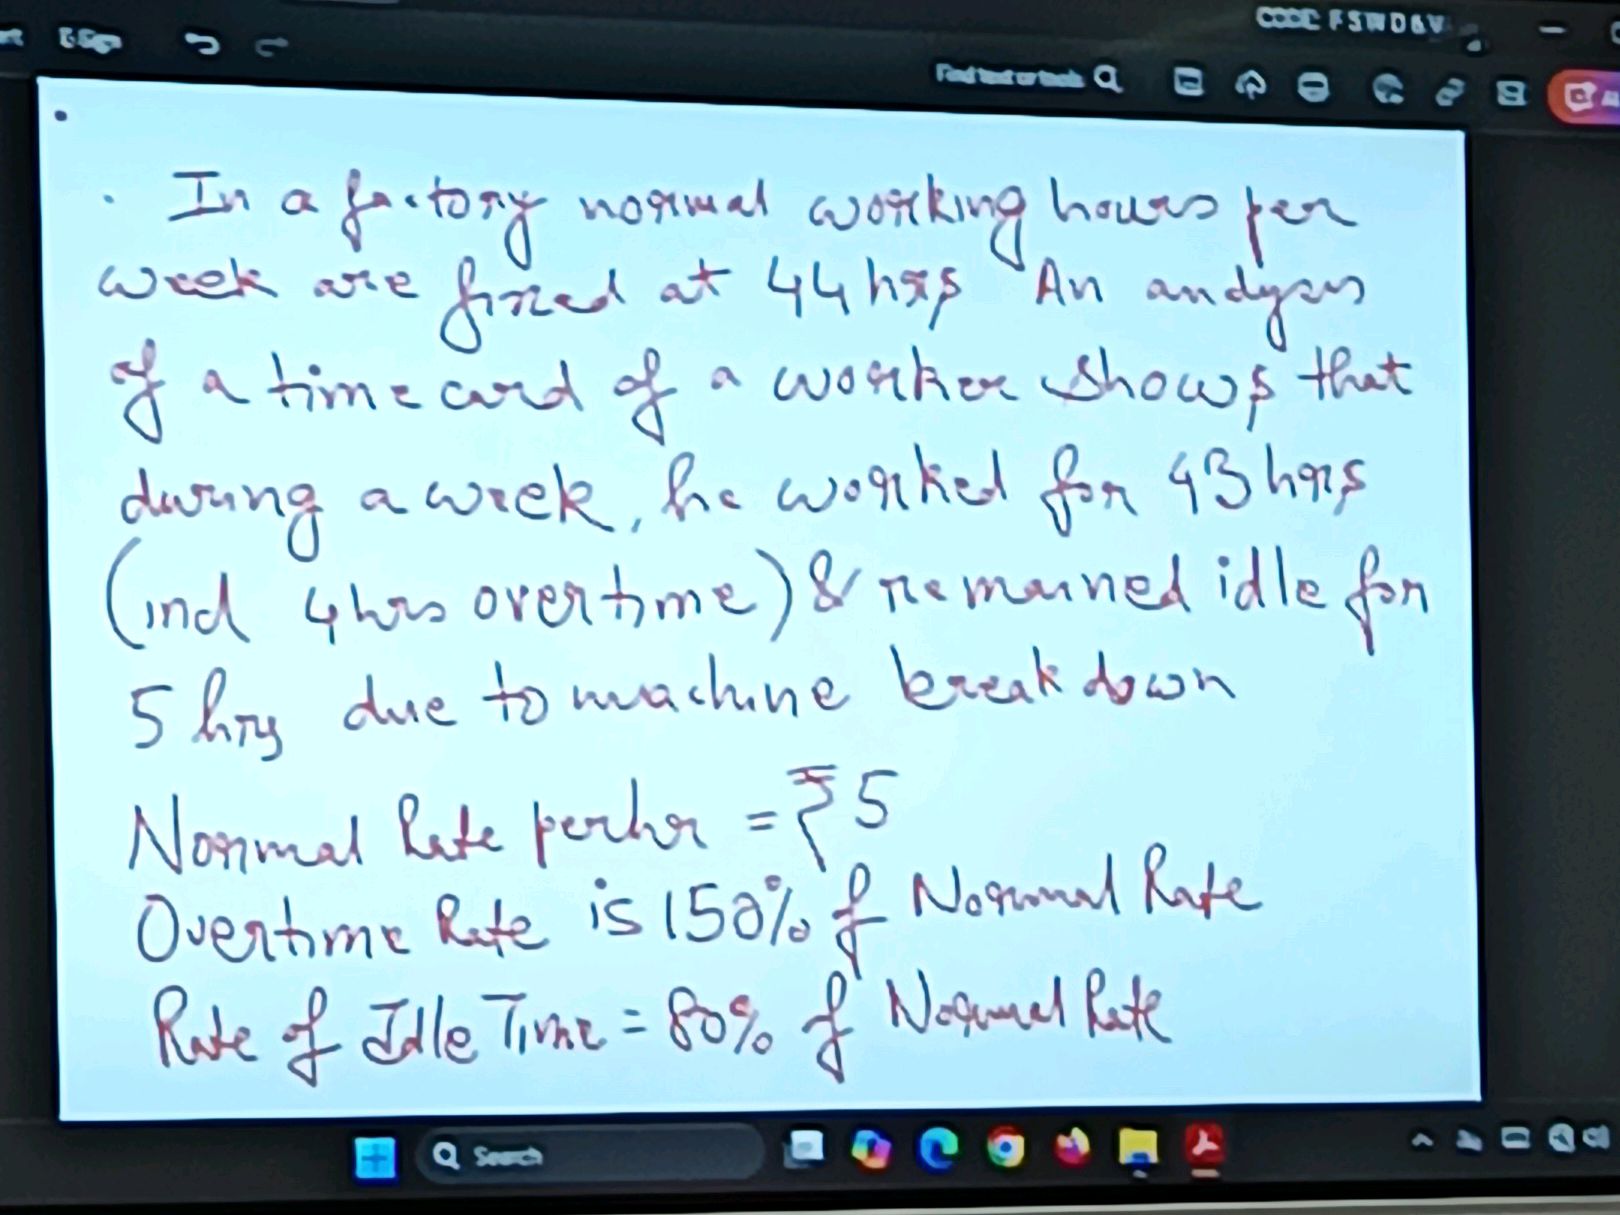 CODE FSWD6V
Find text or tools
In a factory normal working hours per
week are fixed at 44 hrs An analysis
of a time card of a worker shows that
during a week, he worked for 43 hrs
(incl 4 hrs overtime) & remained idle for
5 hrs due to machine break down
Normal Rate per hr = ₹5
Overtime Rate is 150% of Normal Rate
Rate of Idle Time = 80% of Normal Rate
Search